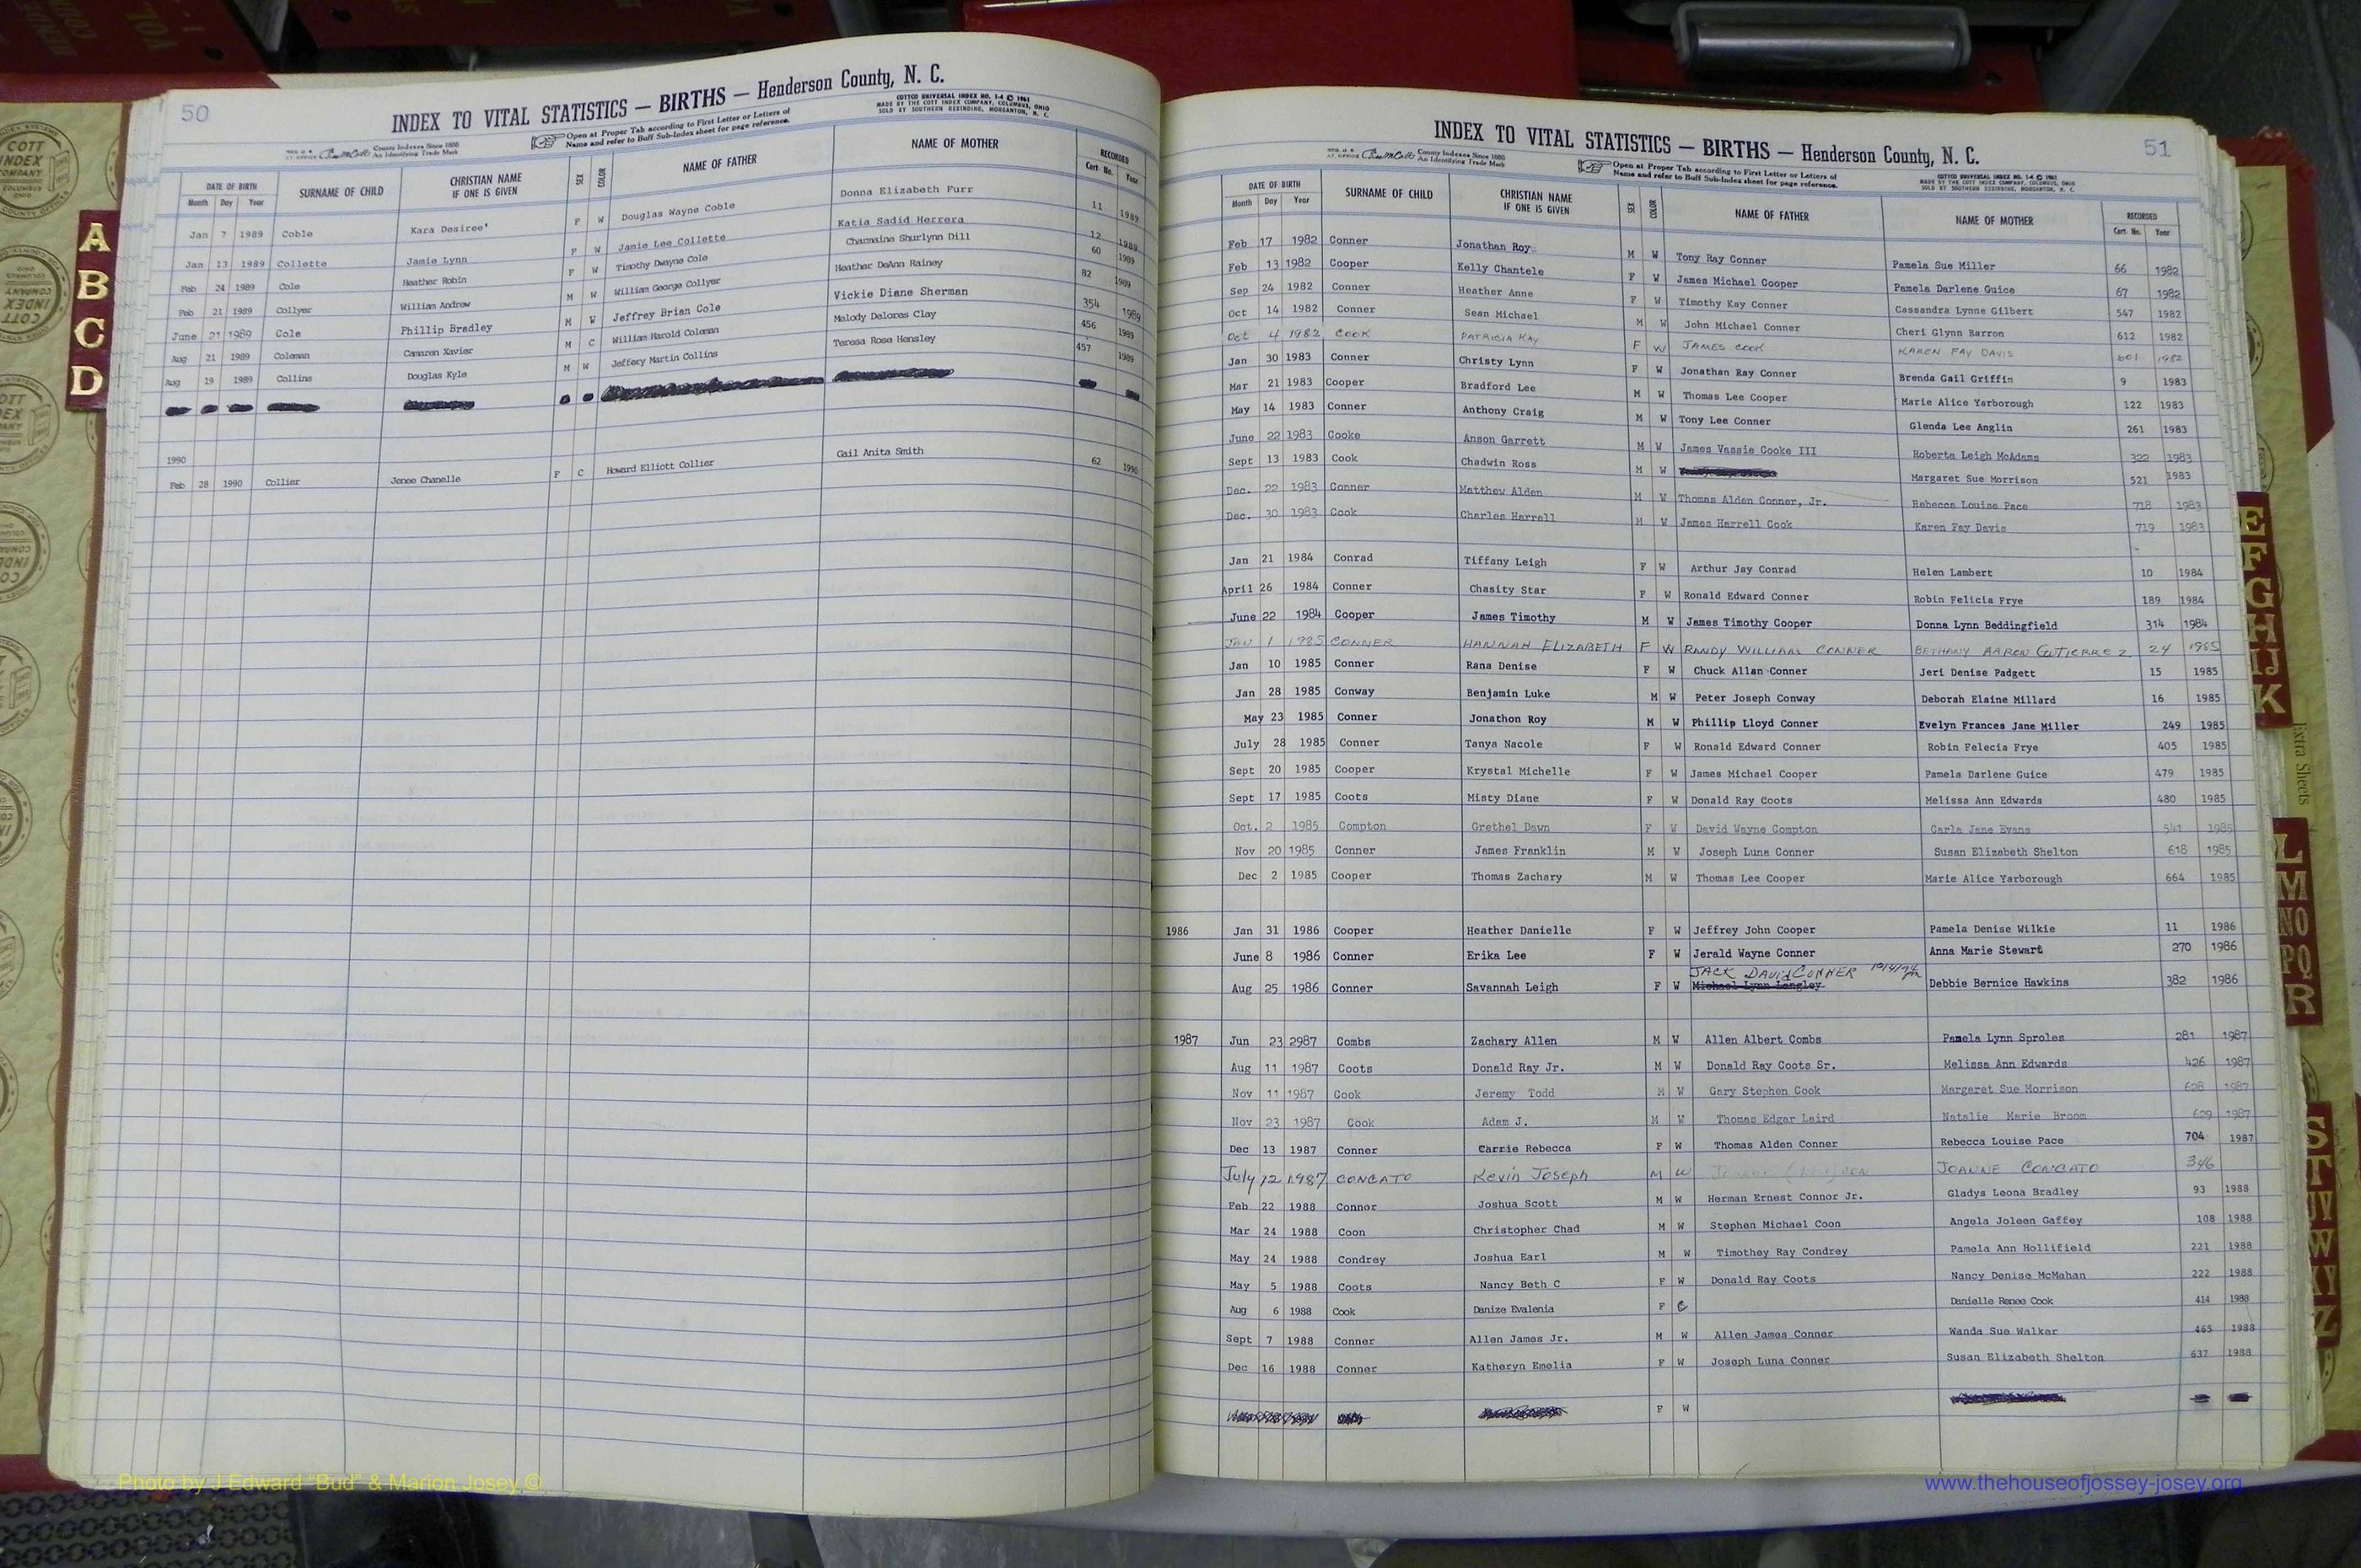 50
INDEX TO VITAL STATISTICS — BIRTHS — Henderson County, N. C.
COTTCO UNIVERSAL INDEX NO. 1-4 © 1961
MADE BY THE COTT INDEX COMPANY, COLUMBUS, OHIO
SOLD BY SOUTHERN REBINDING, MORGANTON, N. C.
County Indexes Since 1888
An Identifying Trade Mark
Open at Proper Tab according to First Letter or Letters of
Name and refer to Buff Sub-Index sheet for page reference.
DATE OF BIRTH Month Day Year SURNAME OF CHILD CHRISTIAN NAME IF ONE IS GIVEN SEX COLOR NAME OF FATHER NAME OF MOTHER RECORDED Cert. No. Year
Jan 7 1989 Coble Kara Desiree' F W Douglas Wayne Coble Donna Elizabeth Furr 11 1989
Jan 13 1989 Collette Jamie Lynn F W Jamie Lee Collette Katia Sadid Herrera 12 1989
Feb 24 1989 Cole Heather Robin F W Timothy Dwayne Cole Charmaine Shurlynn Dill 60 1989
Feb 21 1989 Collyer William Andrew M W William George Collyer Heather DeAnn Rainey 82 1989
June 21 1989 Cole Phillip Bradley M W Jeffrey Brian Cole Vickie Diane Sherman 354 1989
Aug 21 1989 Coleman Camaren Xavier M C William Harold Coleman Melody Delores Clay 456 1989
Aug 19 1989 Collins Douglas Kyle M W Jeffery Martin Collins Teresa Rose Hensley 457 1989
1990
Feb 28 1990 Collier Jenee Chanelle F C Howard Elliott Collier Gail Anita Smith 62 1990
A
B
C
D
51
INDEX TO VITAL STATISTICS — BIRTHS — Henderson County, N. C.
COTTCO UNIVERSAL INDEX NO. 1-4 © 1961
MADE BY THE COTT INDEX COMPANY, COLUMBUS, OHIO
SOLD BY SOUTHERN REBINDING, MORGANTON, N. C.
County Indexes Since 1888
An Identifying Trade Mark
Open at Proper Tab according to First Letter or Letters of
Name and refer to Buff Sub-Index sheet for page reference.
DATE OF BIRTH Month Day Year SURNAME OF CHILD CHRISTIAN NAME IF ONE IS GIVEN SEX COLOR NAME OF FATHER NAME OF MOTHER RECORDED Cert. No. Year
Feb 17 1982 Conner Jonathan Roy M W Tony Ray Conner Pamela Sue Miller 66 1982
Feb 13 1982 Cooper Kelly Chantele F W James Michael Cooper Pamela Darlene Guice 67 1982
Sep 24 1982 Conner Heather Anne F W Timothy Kay Conner Cassandra Lynne Gilbert 547 1982
Oct 14 1982 Conner Sean Michael M W John Michael Conner Cheri Glynn Barron 612 1982
Oct 4 1982 COOK PATRICIA KAY F W JAMES COOK KAREN FAY DAVIS 601 1982
Jan 30 1983 Conner Christy Lynn F W Jonathan Ray Conner Brenda Gail Griffin 9 1983
Mar 21 1983 Cooper Bradford Lee M W Thomas Lee Cooper Marie Alice Yarborough 122 1983
May 14 1983 Conner Anthony Craig M W Tony Lee Conner Glenda Lee Anglin 261 1983
June 22 1983 Cooke Anson Garrett M W James Vassie Cooke III Roberta Leigh McAdams 322 1983
Sept 13 1983 Cook Chadwin Ross M W Margaret Sue Morrison 521 1983
Dec. 22 1983 Conner Matthew Alden M W Thomas Alden Conner, Jr. Rebecca Louise Pace 718 1983
Dec. 30 1983 Cook Charles Harrell M W James Harrell Cook Karen Fay Davis 719 1983
Jan 21 1984 Conrad Tiffany Leigh F W Arthur Jay Conrad Helen Lambert 10 1984
April 26 1984 Conner Chasity Star F W Ronald Edward Conner Robin Felicia Frye 189 1984
June 22 1984 Cooper James Timothy M W James Timothy Cooper Donna Lynn Beddingfield 314 1984
JAN 1 1985 CONNER HANNAH ELIZABETH F W RANDY WILLIAM CONNER BETHANY AARON GUTIERREZ 24 1985
Jan 10 1985 Conner Rana Denise F W Chuck Allan Conner Jeri Denise Padgett 15 1985
Jan 28 1985 Conway Benjamin Luke M W Peter Joseph Conway Deborah Elaine Millard 16 1985
May 23 1985 Conner Jonathon Roy M W Phillip Lloyd Conner Evelyn Frances Jane Miller 249 1985
July 28 1985 Conner Tanya Nacole F W Ronald Edward Conner Robin Felecia Frye 405 1985
Sept 20 1985 Cooper Krystal Michelle F W James Michael Cooper Pamela Darlene Guice 479 1985
Sept 17 1985 Coots Misty Diane F W Donald Ray Coots Melissa Ann Edwards 480 1985
Oct. 2 1985 Compton Grethel Dawn F W David Wayne Compton Carla Jane Evans 541 1985
Nov 20 1985 Conner James Franklin M W Joseph Luna Conner Susan Elizabeth Shelton 618 1985
Dec 2 1985 Cooper Thomas Zachary M W Thomas Lee Cooper Marie Alice Yarborough 664 1985
1986 Jan 31 1986 Cooper Heather Danielle F W Jeffrey John Cooper Pamela Denise Wilkie 11 1986
June 8 1986 Conner Erika Lee F W Jerald Wayne Conner Anna Marie Stewart 270 1986
JACK DAVID CONNER
Aug 25 1986 Conner Savannah Leigh F W Michael Lynn Langley Debbie Bernice Hawkins 382 1986
1987 Jun 23 2987 Combs Zachary Allen M W Allen Albert Combs Pamela Lynn Sproles 281 1987
Aug 11 1987 Coots Donald Ray Jr. M W Donald Ray Coots Sr. Melissa Ann Edwards 426 1987
Nov 11 1987 Cook Jeremy Todd M W Gary Stephen Cook Margaret Sue Morrison 628 1987
Nov 23 1987 Cook Adam J. M W Thomas Edgar Laird Natalie Marie Broom 629 1987
Dec 13 1987 Conner Carrie Rebecca F W Thomas Alden Conner Rebecca Louise Pace 704 1987
July 12 1987 CONCATO Kevin Joseph M W JOANNE CONCATO 346
Feb 22 1988 Connor Joshua Scott M W Herman Ernest Connor Jr. Gladys Leona Bradley 93 1988
Mar 24 1988 Coon Christopher Chad M W Stephen Michael Coon Angela Joleen Gaffey 108 1988
May 24 1988 Condrey Joshua Earl M W Timothey Ray Condrey Pamela Ann Hollifield 221 1988
May 5 1988 Coots Nancy Beth C F W Donald Ray Coots Nancy Denise McMahan 222 1988
Aug 6 1988 Cook Danize Evalenia F C Danielle Renee Cook 414 1988
Sept 7 1988 Conner Allen James Jr. M W Allen James Conner Wanda Sue Walker 465 1988
Dec 16 1988 Conner Katheryn Emelia F W Joseph Luna Conner Susan Elizabeth Shelton 637 1988
F W
E
F
G
H
IJ
K
Extra Sheets
L
M
NO
PQ
R
S
T
UV
W
XY
Z
Photo by J Edward "Bud" & Marion Josey ©
www.thehouseofjossey-josey.org